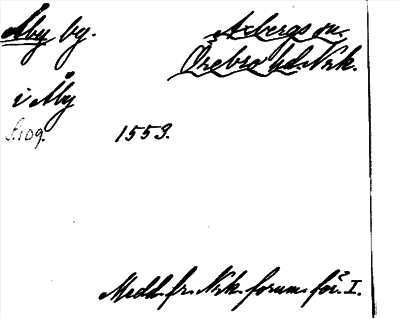 Åby by. Axbergs sn.
Örebro hd. Nrk.
i Åby
s. 109. 1553.
Medd. fr. Nrk. fornm. för. I.